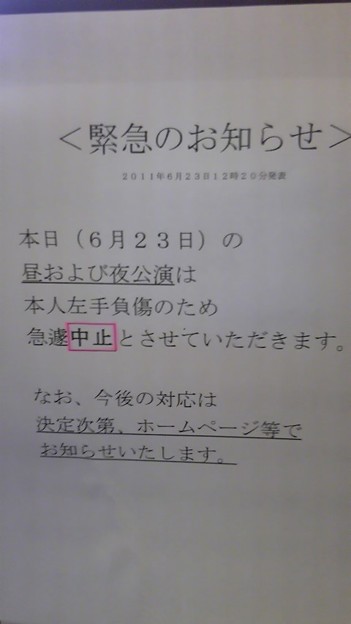 ＜緊急のお知らせ＞
２０１１年６月２３日１２時２０分発表
本日（６月２３日）の
昼および夜公演は
本人左手負傷のため
急遽中止とさせていただきます。
なお、今後の対応は
決定次第、ホームページ等で
お知らせいたします。